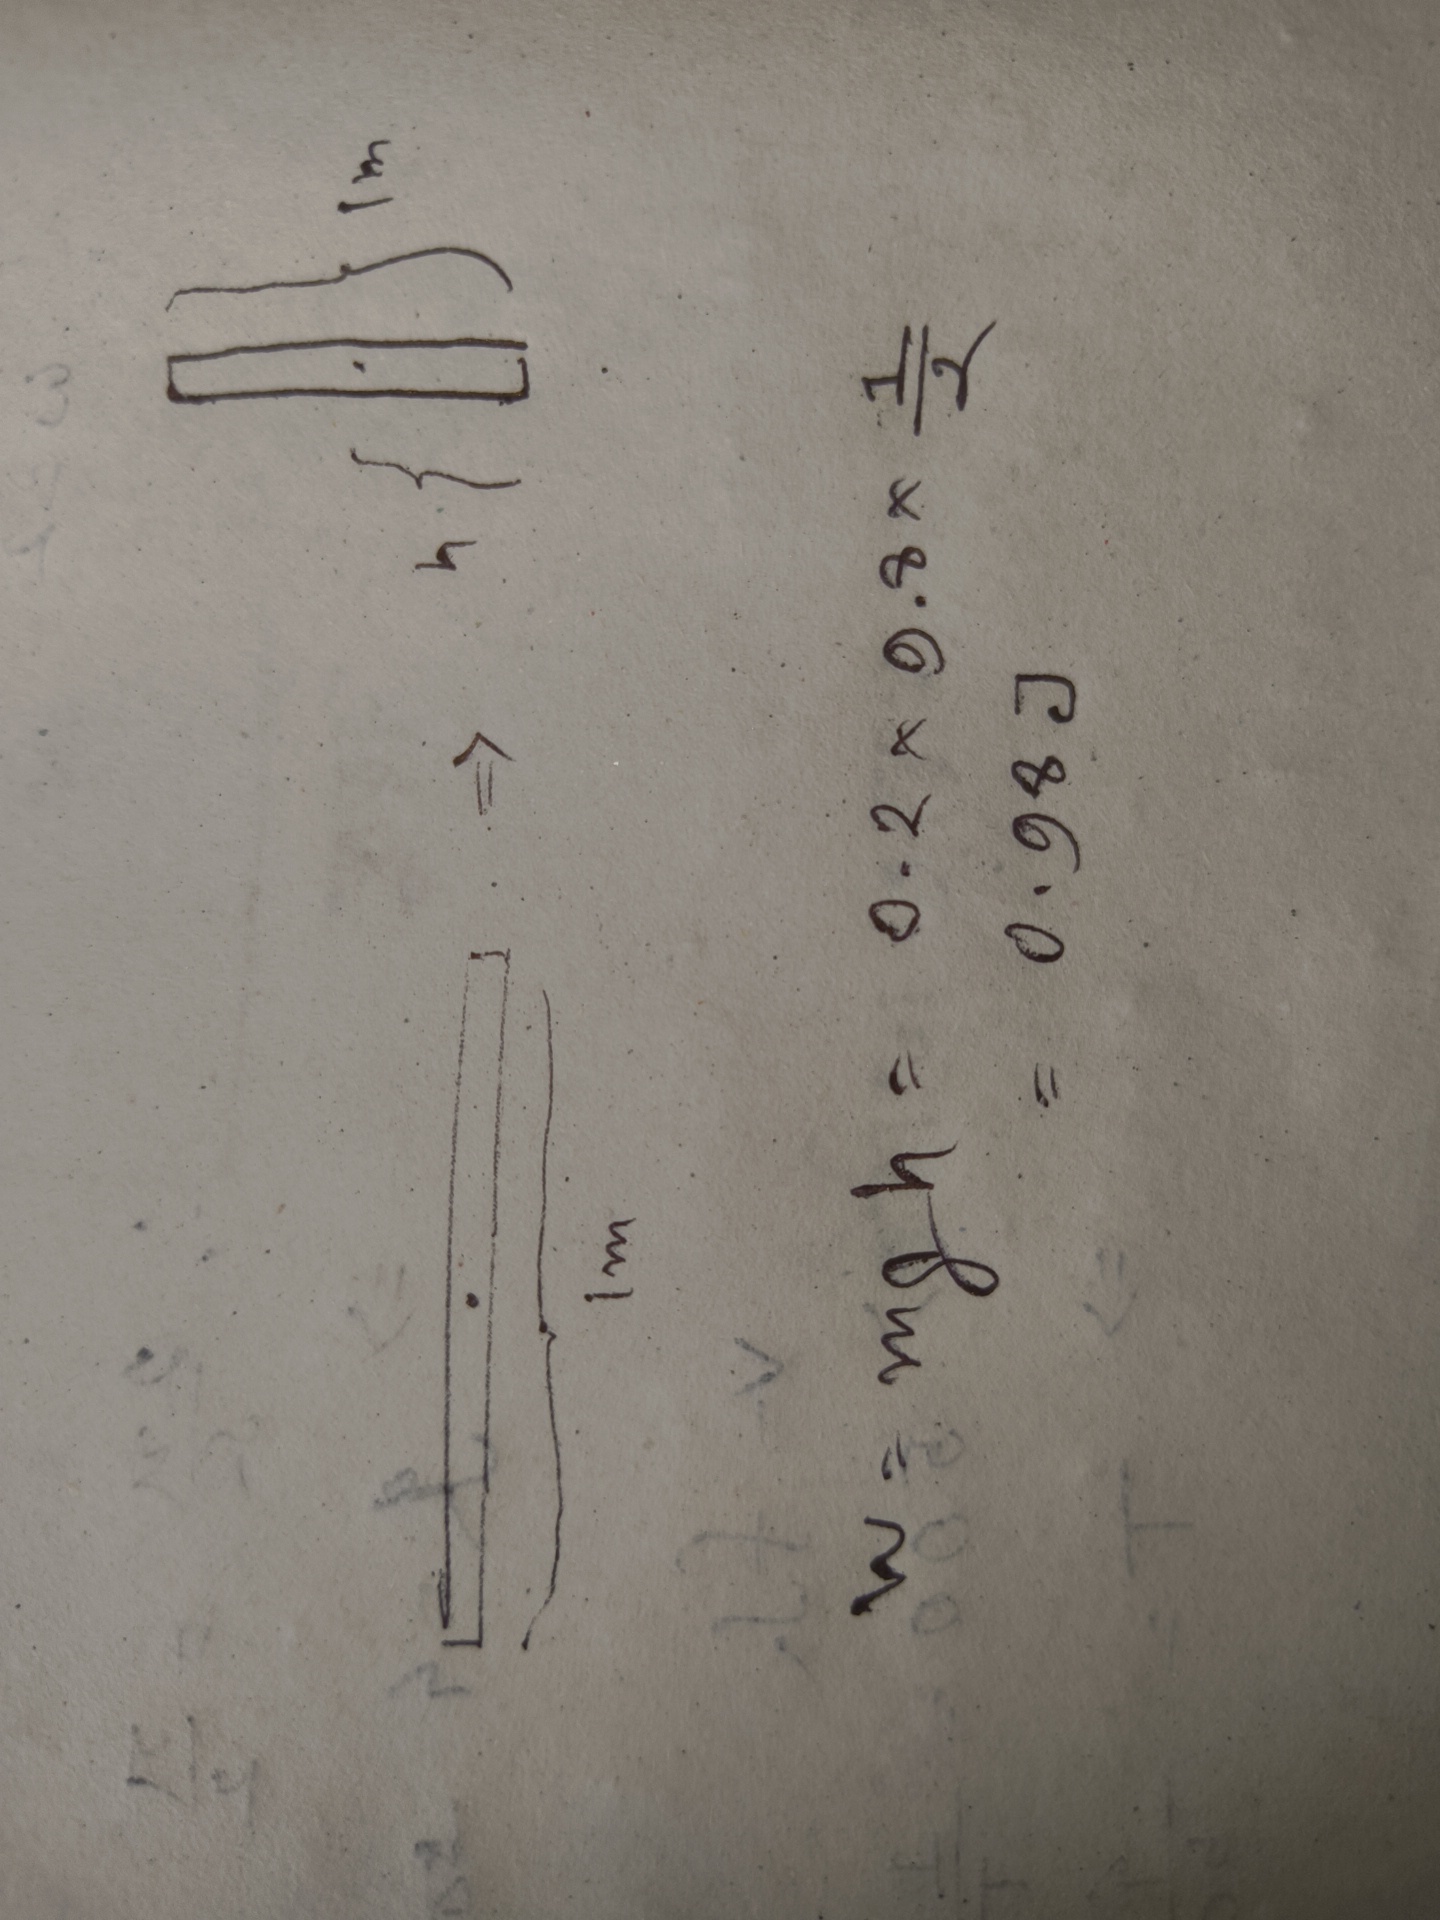 1m
h
⇒
1m
W = mgh = 0.2 × 9.8 × 1/2
= 0.98 J